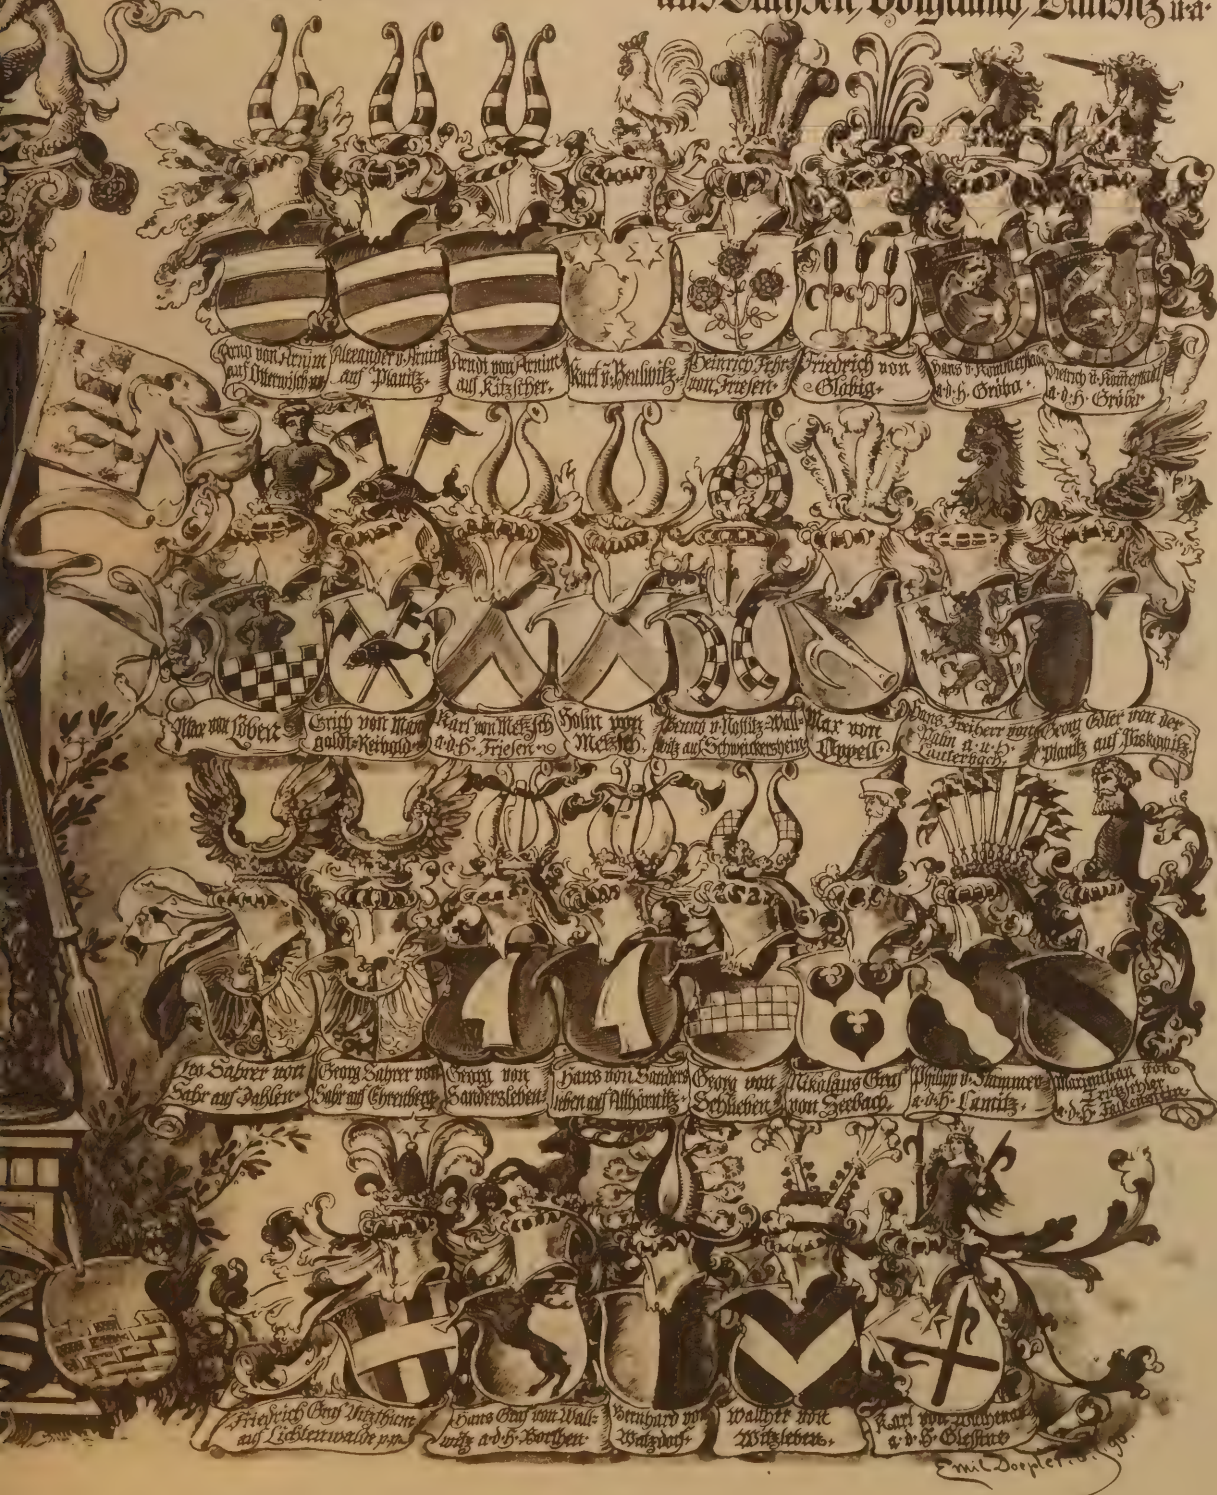 aus Sachsen, Voigtland, Lausitz u·a·
Arno von Arnim
auf Otterwisch pp.
Alexander v. Arnim
auf Planitz.
Arndt von Arnim
auf Kitzscher.
Kurt v. Beulwitz.
Heinrich Frhr.
von Friesen.
Friedrich von
Globig.
Hans v. Kommerstädt
a·d·H· Gröba.
Dietrich v. Kommerstädt
a·d·H· Gröba
Max von Löben
Erich von Man
goldt-Reibold.
Karl von Metzsch
a·d·H· Friesen.
Holm von
Metzsch.
Benno v. Nostitz-Wall
witz auf Schweikershain
Max von
Oppell.
Hans Freiherr von
Palm a·u·h·
Lauterbach.
Georg Edler von der
Planitz auf Piskowitz.
Leo Sahrer von
Sahr auf Dahlen.
Georg Sahrer von
Sahr auf Ehrenberg.
Georg von
Sandersleben.
Hans von Sanders
leben auf Althörnitz.
Georg von
Schlieben.
Nikolaus Graf
von Seebach.
Philipp v. Stammer
a·d·H·
Maximilian von
Trütschler
a·d·H· Falkenstein.
Friedrich Graf Vitzthum
auf Lichtenwalde p·p·
Hans Graf von Wall-
witz a·d·H· Borthen.
Bernhard von
Watzdorf.
Walther von
Witzleben.
Karl von
a·d·H·
Emil Doepler d. J. 90.